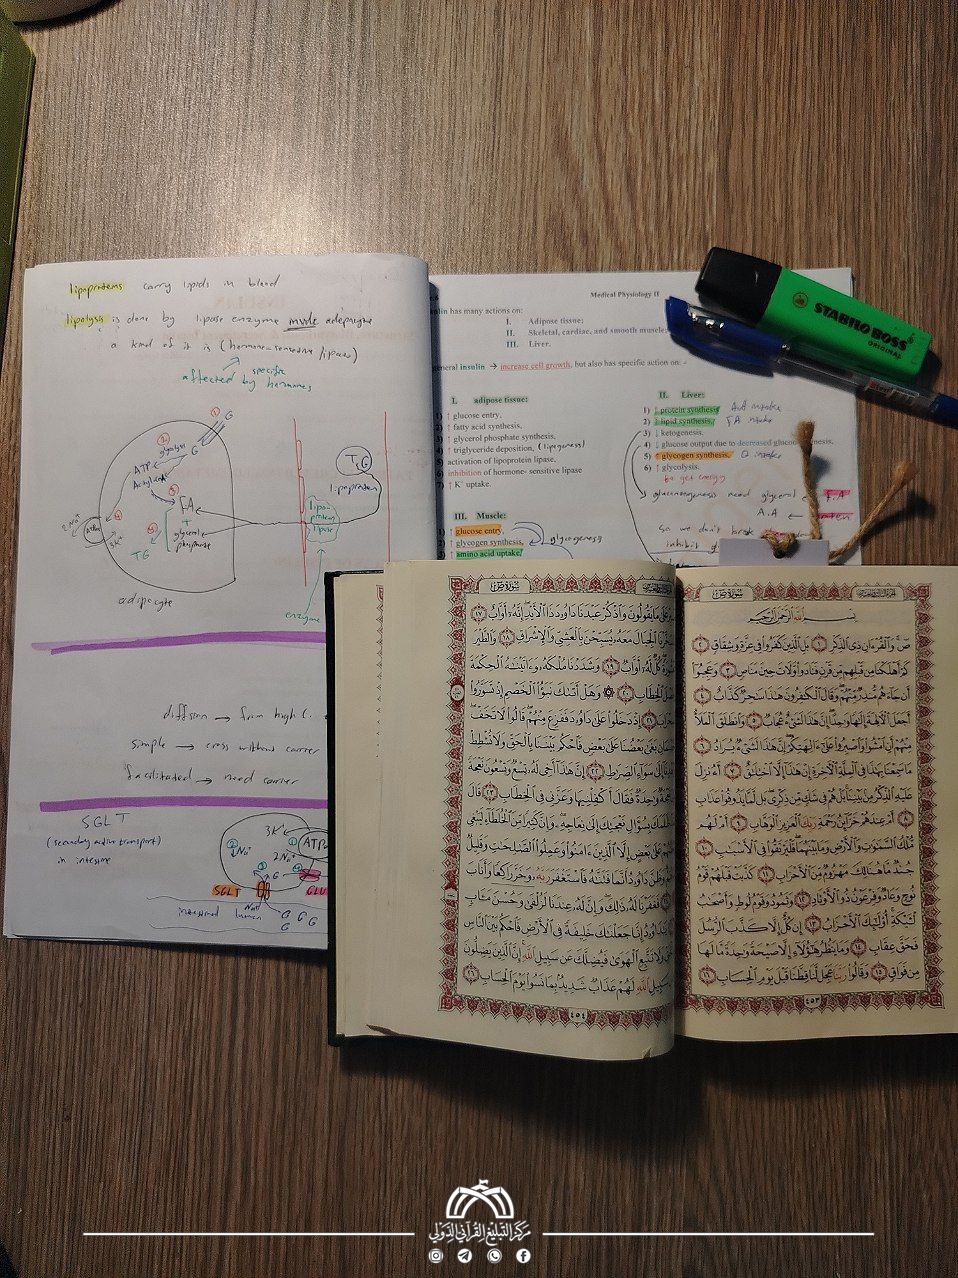 lipoproteins carry lipids in blood
lipolysis is done by lipase enzyme inside adipocyte
a kind of it is (hormone-sensitive lipase)
specific
affected by hormones
G
glycolysis
G
ATP
FA
+
glycerol
phosphate
TG
2Na⁺
3K⁺
adipocyte
TG
lipoprotein
lipo-
protein
lipase
enzyme
diffusion → from high C.
simple → cross without carrier
facilitated → need carrier
SGLT
(secondary active transport)
in intestine
3K⁺
ATP
2Na⁺
Na⁺
G
SGLT
GLU
G G G
Medical Physiology II
has many actions on:
I. Adipose tissue;
II. Skeletal, cardiac, and smooth muscle;
III. Liver.
general insulin → increase cell growth, but also has specific action on: -
I. adipose tissue:
1) ↑ glucose entry,
2) ↑ fatty acid synthesis,
3) ↑ glycerol phosphate synthesis,
4) ↑ triglyceride deposition, (lipogenesis)
5) activation of lipoprotein lipase,
6) inhibition of hormone- sensitive lipase
7) ↑ K⁺ uptake.
III. Muscle:
1) ↑ glucose entry,
2) ↑ glycogen synthesis, glycogenesis
3) ↑ amino acid uptake,
II. Liver:
1) ↑ protein synthesis A.A intake
2) ↑ lipid synthesis, FA intake
3) ↓ ketogenesis,
4) ↓ glucose output due to decreased
5) ↑ glycogen synthesis, G intake
6) ↑ glycolysis.
to get energy
gluconeogenesis need glycerol ← F.A
A.A ←
so we don't break
inhibit
STABILO BOSS
ORIGINAL
سورة ص
بسم الله الرحمن الرحيم
ص والقرءان ذي الذكر ١ بل الذين كفروا في عزة وشقاق ٢
كم أهلكنا من قبلهم من قرن فنادوا ولات حين مناص ٣ وعجبوا
أن جاءهم منذر منهم وقال الكافرون هذا ساحر كذاب ٤
أجعل الآلهة إلها واحدا إن هذا لشيء عجاب ٥ وانطلق الملأ
منهم أن امشوا واصبروا على ءالهتكم إن هذا لشيء يراد ٦
ما سمعنا بهذا في الملة الآخرة إن هذا إلا اختلاق ٧ أءنزل
عليه الذكر من بيننا بل هم في شك من ذكري بل لما يذوقوا عذاب
٨ أم عندهم خزائن رحمة ربك العزيز الوهاب ٩ أم لهم
ملك السماوات والأرض وما بينهما فليرتقوا في الأسباب ١٠
جند ما هنالك مهزوم من الأحزاب ١١ كذبت قبلهم قوم
نوح وعاد وفرعون ذو الأوتاد ١٢ وثمود وقوم لوط وأصحاب
لئيكة أولئك الأحزاب ١٣ إن كل إلا كذب الرسل
فحق عقاب ١٤ وما ينظر هؤلاء إلا صيحة واحدة ما لها
من فواق ١٥ وقالوا ربنا عجل لنا قطنا قبل يوم الحساب ١٦
٤٥٣
سورة ص
على ما يقولون واذكر عبدنا داوود ذا الأيد إنه أواب ١٧
الجبال معه يسبحن بالعشي والإشراق ١٨ والطير
كل له أواب ١٩ وشددنا ملكه وءاتيناه الحكمة
الخطاب ٢٠ وهل أتاك نبأ الخصم إذ تسوروا
٢١ إذ دخلوا على داوود ففزع منهم قالوا لا تخف
بغى بعضنا على بعض فاحكم بيننا بالحق ولا تشطط
إلى سواء الصراط ٢٢ إن هذا أخي له تسع وتسعون نعجة
واحدة فقال أكفلنيها وعزني في الخطاب ٢٣ قال
بسؤال نعجتك إلى نعاجه وإن كثيرا من الخلطاء ليبغي
على بعض إلا الذين ءامنوا وعملوا الصالحات وقليل
وظن داوود أنما فتناه فاستغفر ربه وخر راكعا وأناب
فغفرنا له ذلك وإن له عندنا لزلفى وحسن مآب
إنا جعلناك خليفة في الأرض فاحكم بين الناس
ولا تتبع الهوى فيضلك عن سبيل الله إن الذين يضلون
سبيل الله لهم عذاب شديد بما نسوا يوم الحساب ٢٦
٤٥٤
مركز التبليغ القرآني الدولي